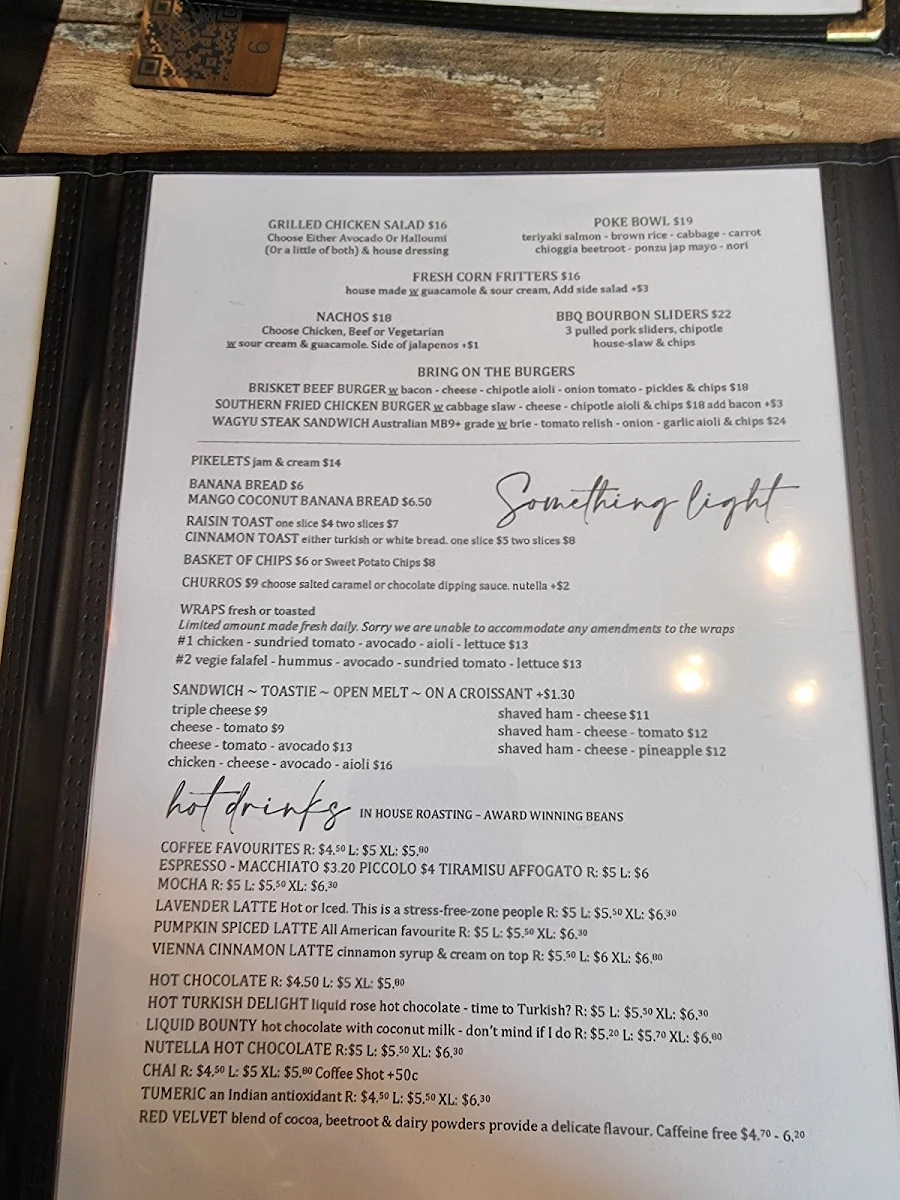 6
GRILLED CHICKEN SALAD $16
Choose Either Avocado Or Halloumi
(Or a little of both) & house dressing
POKE BOWL $19
teriyaki salmon - brown rice - cabbage - carrot
chioggia beetroot - ponzu jap mayo - nori
FRESH CORN FRITTERS $16
house made w guacamole & sour cream, Add side salad +$3
NACHOS $18
Choose Chicken, Beef or Vegetarian
w sour cream & guacamole. Side of jalapenos +$1
BBQ BOURBON SLIDERS $22
3 pulled pork sliders, chipotle
house-slaw & chips
BRING ON THE BURGERS
BRISKET BEEF BURGER w bacon - cheese - chipotle aioli - onion tomato - pickles & chips $18
SOUTHERN FRIED CHICKEN BURGER w cabbage slaw - cheese - chipotle aioli & chips $18 add bacon +$3
WAGYU STEAK SANDWICH Australian MB9+ grade w brie - tomato relish - onion - garlic aioli & chips $24
Something light
PIKELETS jam & cream $14
BANANA BREAD $6
MANGO COCONUT BANANA BREAD $6.50
RAISIN TOAST one slice $4 two slices $7
CINNAMON TOAST either turkish or white bread. one slice $5 two slices $8
BASKET OF CHIPS $6 or Sweet Potato Chips $8
CHURROS $9 choose salted caramel or chocolate dipping sauce. nutella +$2
WRAPS fresh or toasted
Limited amount made fresh daily. Sorry we are unable to accommodate any amendments to the wraps
#1 chicken - sundried tomato - avocado - aioli - lettuce $13
#2 vegie falafel - hummus - avocado - sundried tomato - lettuce $13
SANDWICH ~ TOASTIE ~ OPEN MELT ~ ON A CROISSANT +$1.30
triple cheese $9
cheese - tomato $9
cheese - tomato - avocado $13
chicken - cheese - avocado - aioli $16
shaved ham - cheese $11
shaved ham - cheese - tomato $12
shaved ham - cheese - pineapple $12
hot drinks IN HOUSE ROASTING – AWARD WINNING BEANS
COFFEE FAVOURITES R: $4.50 L: $5 XL: $5.80
ESPRESSO - MACCHIATO $3.20 PICCOLO $4 TIRAMISU AFFOGATO R: $5 L: $6
MOCHA R: $5 L: $5.50 XL: $6.30
LAVENDER LATTE Hot or Iced. This is a stress-free-zone people R: $5 L: $5.50 XL: $6.30
PUMPKIN SPICED LATTE All American favourite R: $5 L: $5.50 XL: $6.30
VIENNA CINNAMON LATTE cinnamon syrup & cream on top R: $5.50 L: $6 XL: $6.80
HOT CHOCOLATE R: $4.50 L: $5 XL: $5.80
HOT TURKISH DELIGHT liquid rose hot chocolate - time to Turkish? R: $5 L: $5.50 XL: $6.30
LIQUID BOUNTY hot chocolate with coconut milk - don't mind if I do R: $5.20 L: $5.70 XL: $6.80
NUTELLA HOT CHOCOLATE R:$5 L: $5.50 XL: $6.30
CHAI R: $4.50 L: $5 XL: $5.80 Coffee Shot +50c
TUMERIC an Indian antioxidant R: $4.50 L: $5.50 XL: $6.30
RED VELVET blend of cocoa, beetroot & dairy powders provide a delicate flavour. Caffeine free $4.70 - 6.20